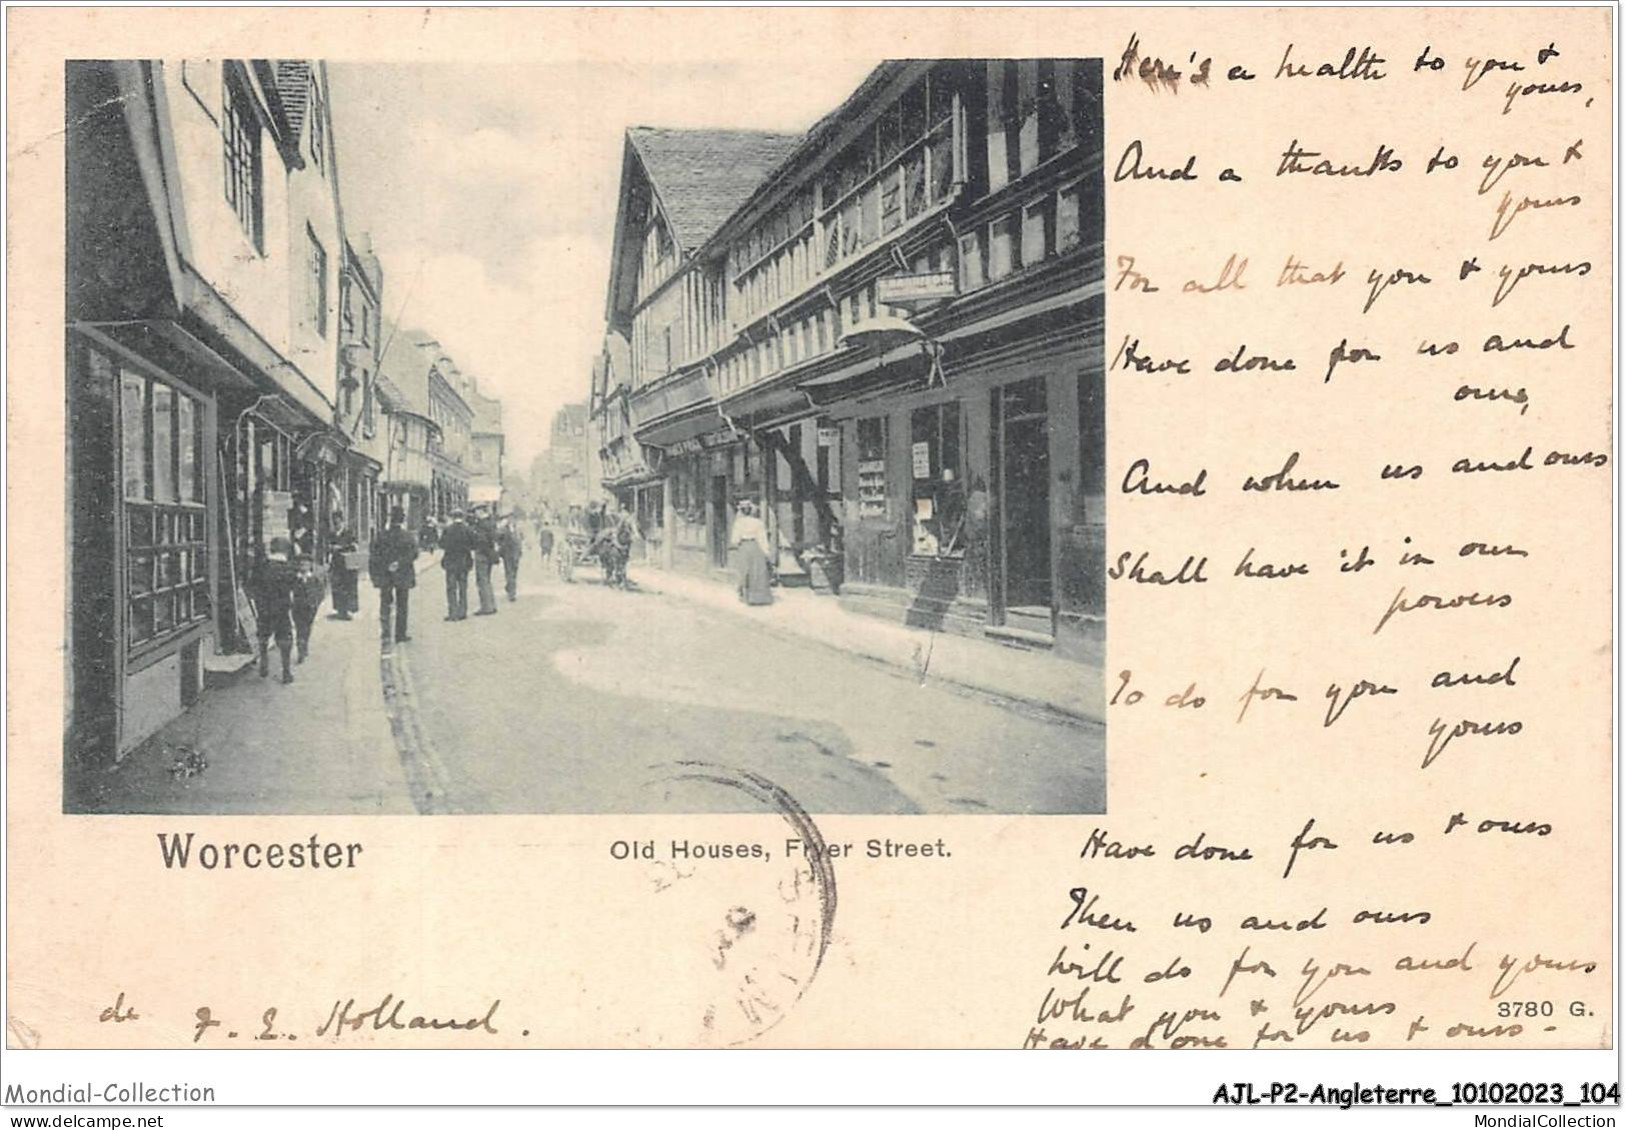 Here's a health to you &
yours,
And a thanks to you &
yours
For all that you & yours
Have done for us and
ours,
And when us and ours
Shall have it in our
powers
To do for you and
yours
Have done for us & ours
Then us and ours
Will do for you and yours
What you & yours
Have done for us & ours -
Worcester
Old Houses, Fryer Street.
de F. E. Holland.
3780 G.
Mondial-Collection
AJL-P2-Angleterre_10102023_104
mondial-collection.delcampe.net
MondialCollection